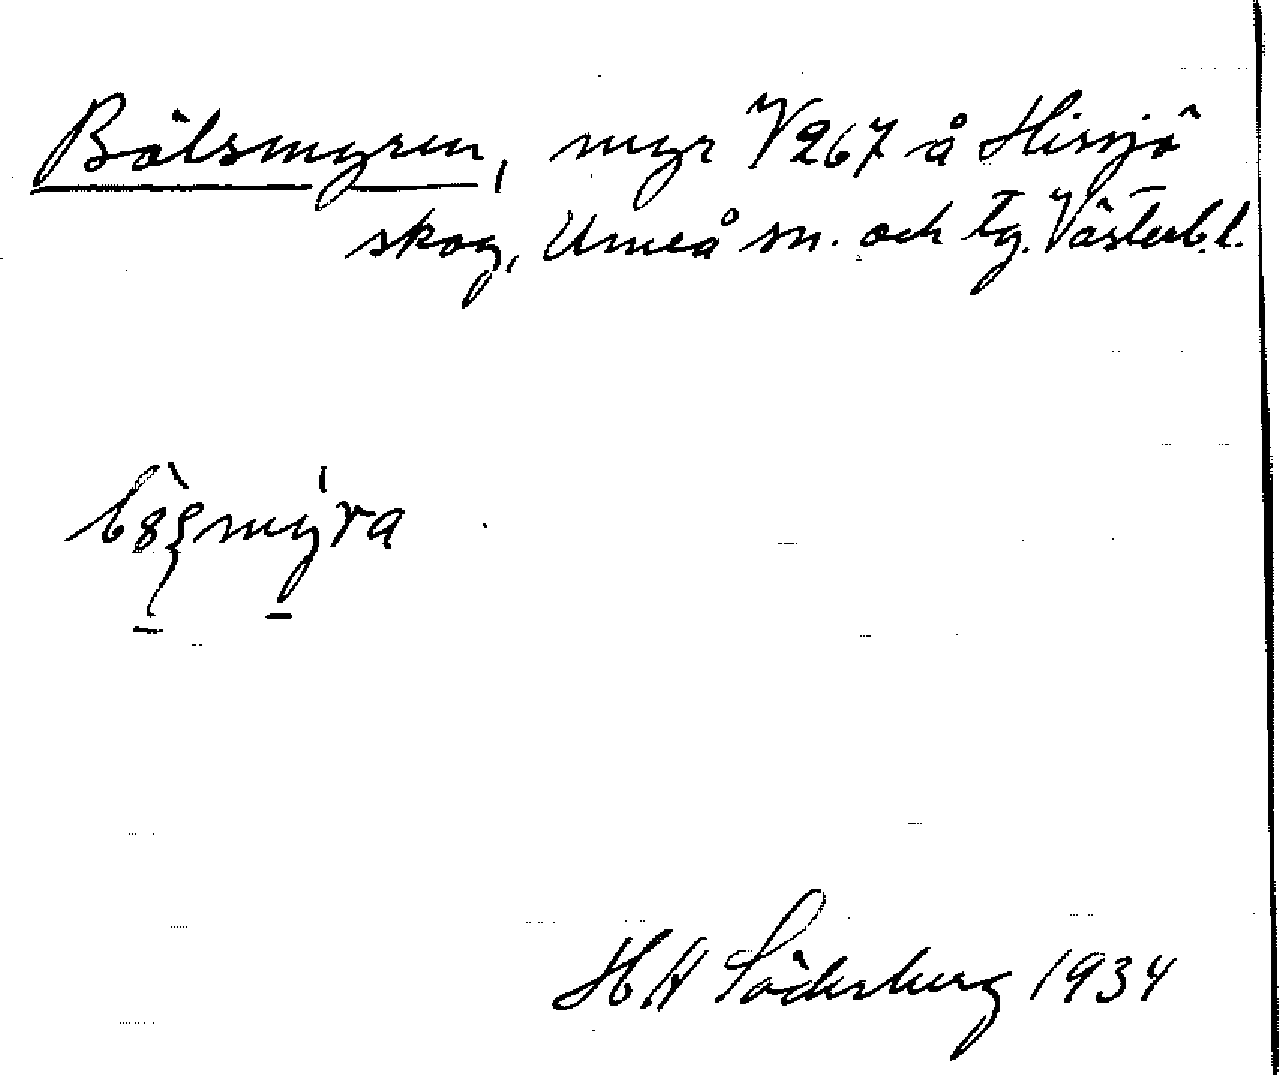 Bölsmyren, myr V267 å Hissjö
skog, Umeå sn. och tg. Västerb.l.
HH Söderberg 1934